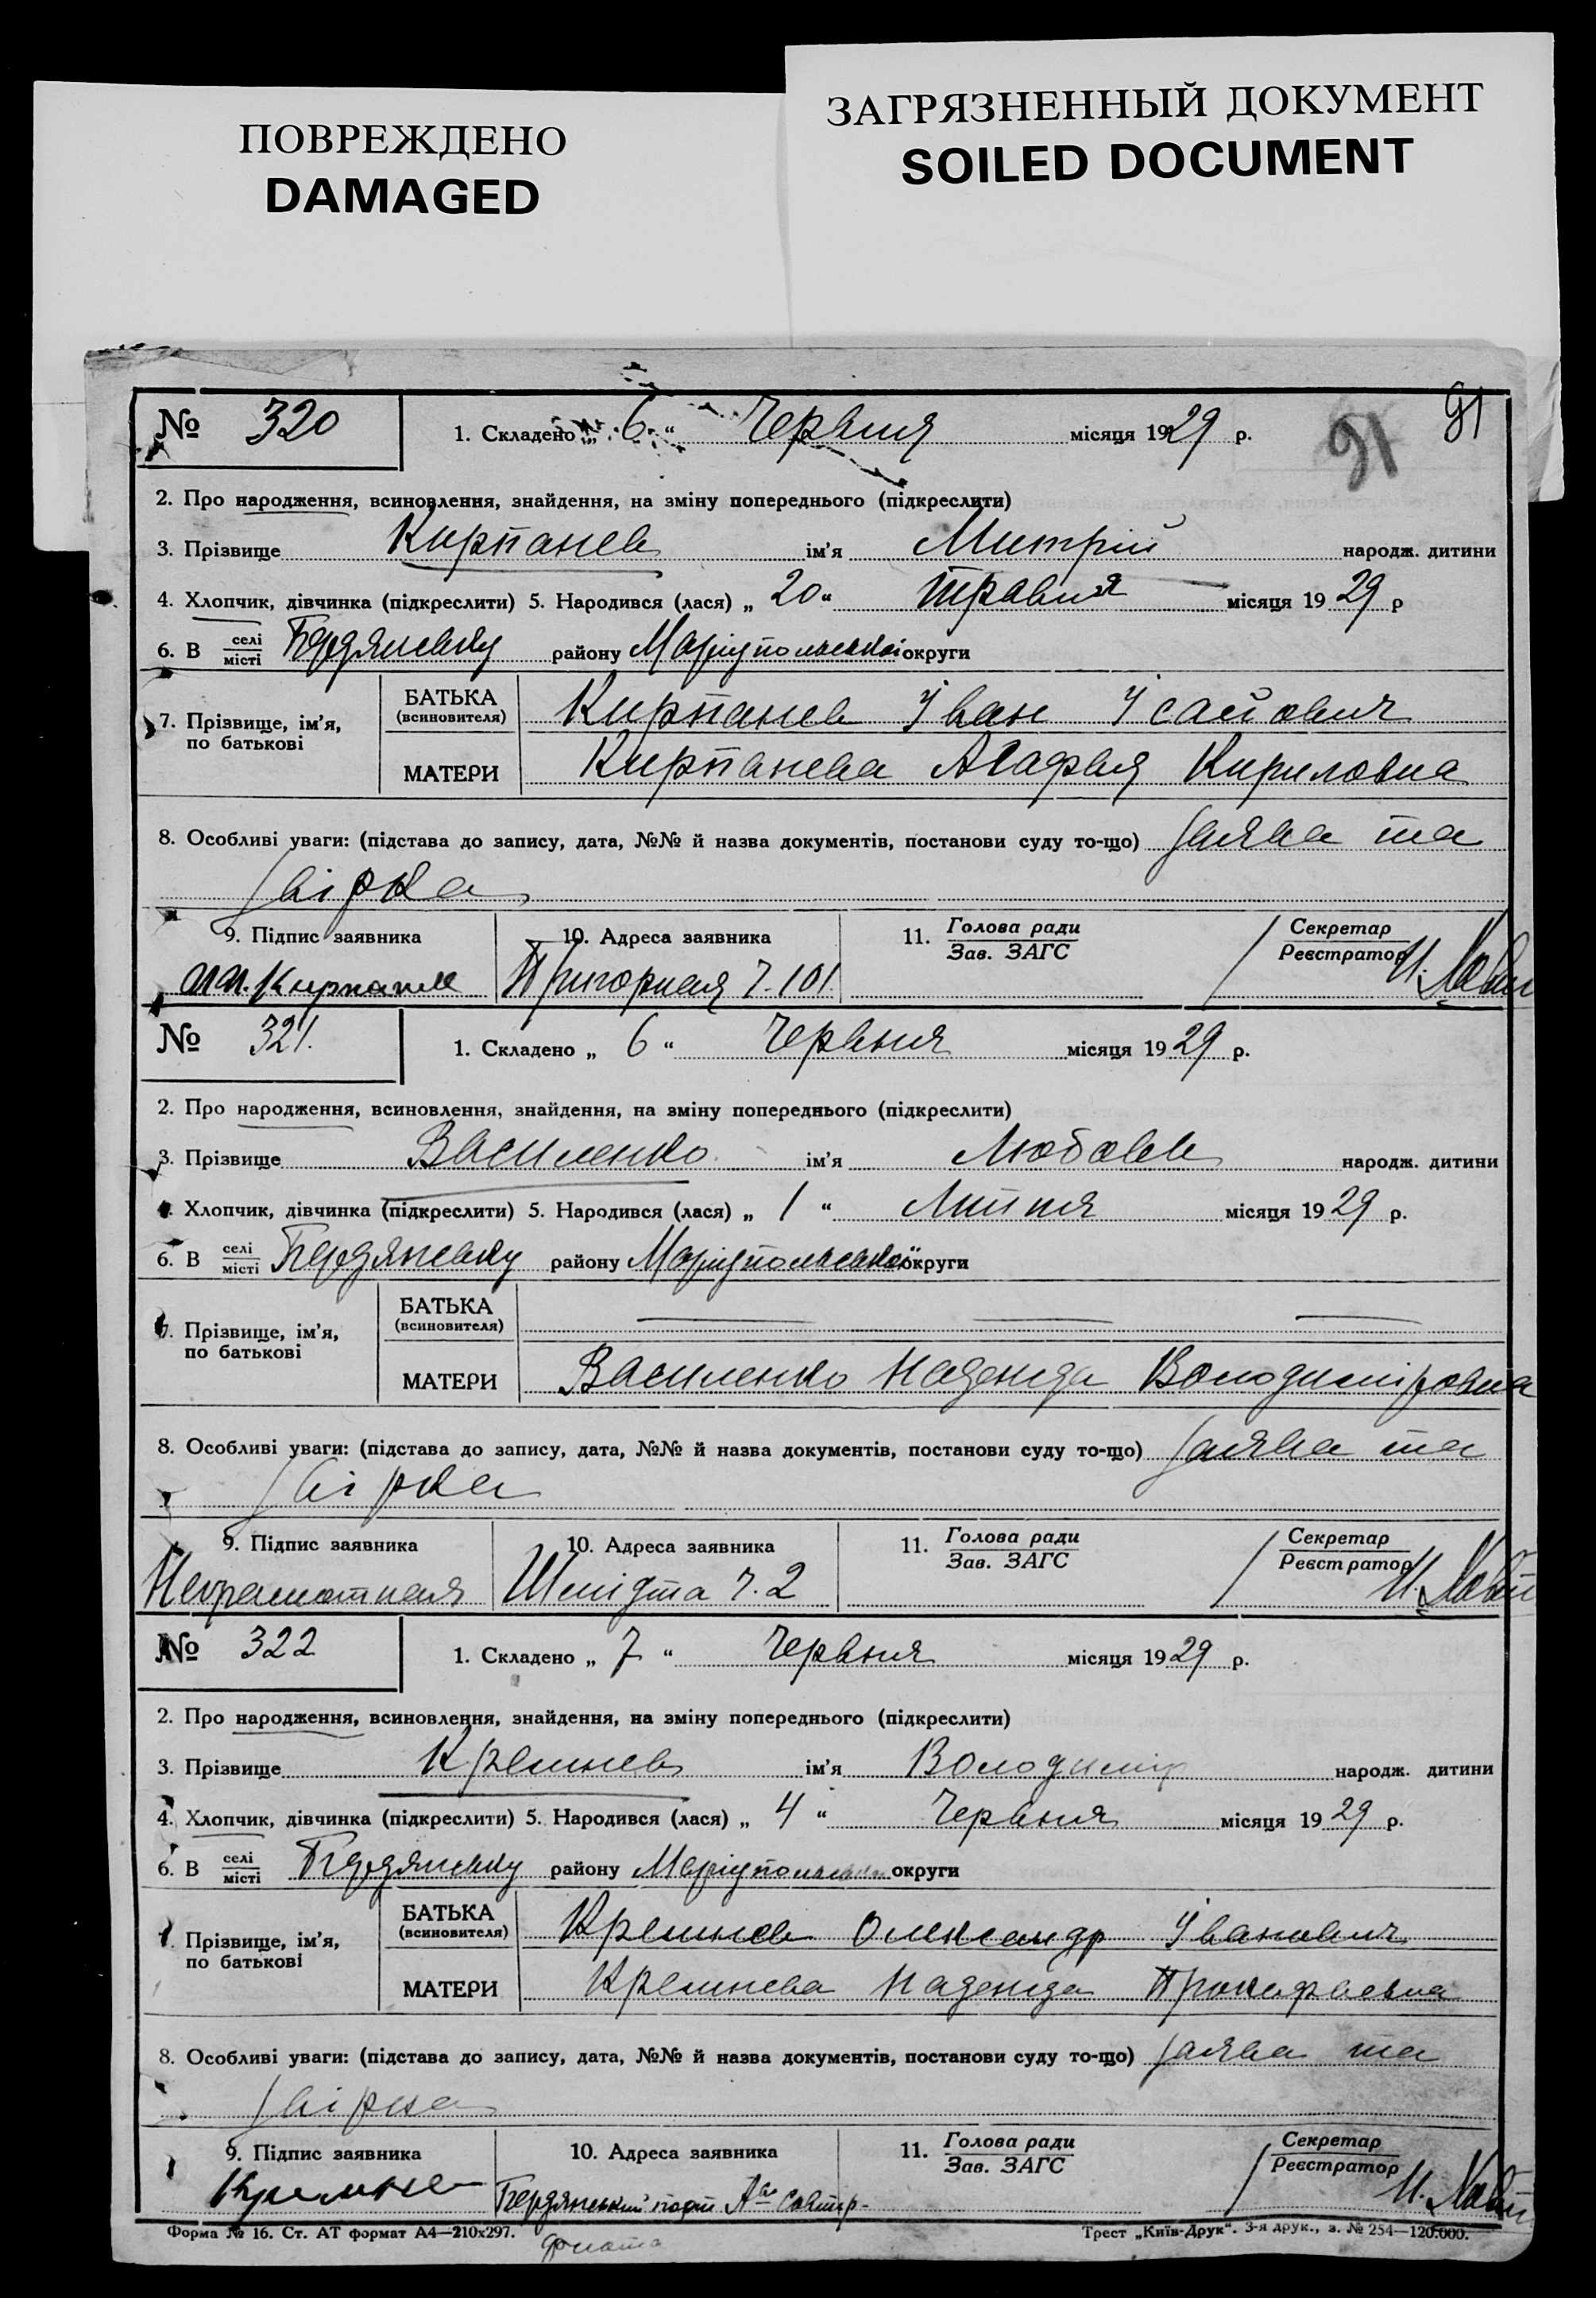 ПОВРЕЖДЕНО
DAMAGED
ЗАГРЯЗНЕННЫЙ ДОКУМЕНТ
SOILED DOCUMENT
91 91
№ 320 1. Складено „ 6 “ Червня місяця 1929 р.
2. Про народження, всиновлення, знайдення, на зміну попереднього (підкреслити)
3. Прізвище Кирпанев ім'я Митрій народж. дитини
4. Хлопчик, дівчинка (підкреслити) 5. Народився (лася) „ 20 “ травня місяця 1929 р
6. В селі/місті Бердянську району Маріупольської округи
7. Прізвище, ім'я, по батькові БАТЬКА (всиновителя) Кирпанев Іван Ісайович
МАТЕРИ Кирпанева Агафья Кириловна
8. Особливі уваги: (підстава до запису, дата, №№ й назва документів, постанови суду то-що) заява та
звірка
9. Підпис заявника 10. Адреса заявника 11. Голова ради/Зав. ЗАГС Секретар/Реєстратор
Нагорная ч. 101
№ 321. 1. Складено „ 6 “ Червня місяця 1929 р.
2. Про народження, всиновлення, знайдення, на зміну попереднього (підкреслити)
3. Прізвище Василенко ім'я Любовь народж. дитини
4. Хлопчик, дівчинка (підкреслити) 5. Народився (лася) „ 1 “ Липня місяця 1929 р.
6. В селі/місті Бердянську району Маріупольської округи
7. Прізвище, ім'я, по батькові БАТЬКА (всиновителя) — — —
МАТЕРИ Василенко Надежда Володиміровна
8. Особливі уваги: (підстава до запису, дата, №№ й назва документів, постанови суду то-що) заява та
звірка
9. Підпис заявника 10. Адреса заявника 11. Голова ради/Зав. ЗАГС Секретар/Реєстратор
Неграмотная Шмідта ч. 2
№ 322 1. Складено „ 7 “ Червня місяця 1929 р.
2. Про народження, всиновлення, знайдення, на зміну попереднього (підкреслити)
3. Прізвище Кремнев ім'я Володимір народж. дитини
4. Хлопчик, дівчинка (підкреслити) 5. Народився (лася) „ 4 “ Червня місяця 1929 р.
6. В селі/місті Бердянську району Маріупольськ округи
7. Прізвище, ім'я, по батькові БАТЬКА (всиновителя) Кремнев Олександр Іванович
МАТЕРИ Кремнева Надежда Прокофьевна
8. Особливі уваги: (підстава до запису, дата, №№ й назва документів, постанови суду то-що) заява та
звірка
9. Підпис заявника 10. Адреса заявника 11. Голова ради/Зав. ЗАГС Секретар/Реєстратор
Бердянський порт
Форма № 16. Ст. АТ формат А4—210х297. Трест „Київ-Друк“. 3-я друк., з. № 254—120.000.